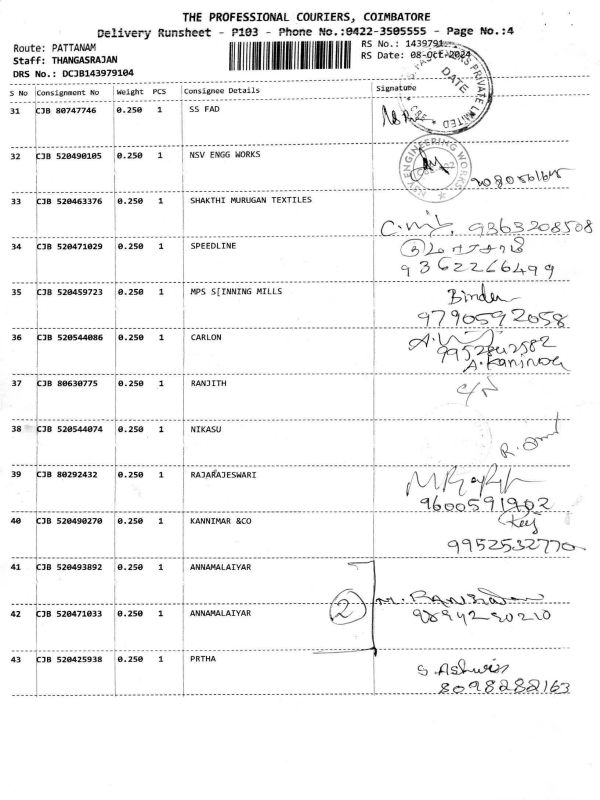 THE PROFESSIONAL COURIERS, COIMBATORE
Delivery Runsheet - P103 - Phone No.:0422-3505555 - Page No.:4
Route: PATTANAM
RS No.: 1439791
Staff: THANGASRAJAN
RS Date: 08-Oct-2024
DRS No.: DCJB143979104
S No Consignment No Weight PCS Consignee Details Signature
31 CJB 80747746 0.250 1 SS FAD
PRIVATE LIMITED
DATE
CBE
32 CJB 520490105 0.250 1 NSV ENGG WORKS
NSV ENGINEERING WORKS
33 CJB 520463376 0.250 1 SHAKTHI MURUGAN TEXTILES
9363208508
34 CJB 520471029 0.250 1 SPEEDLINE
9362266499
35 CJB 520459723 0.250 1 MPS S[INNING MILLS Binder
9790592058
36 CJB 520544086 0.250 1 CARLON
37 CJB 80630775 0.250 1 RANJITH
38 CJB 520544074 0.250 1 NIKASU
39 CJB 80292432 0.250 1 RAJARAJESWARI
9600591902
40 CJB 520490270 0.250 1 KANNIMAR &CO
9952532770
41 CJB 520493892 0.250 1 ANNAMALAIYAR
2
42 CJB 520471033 0.250 1 ANNAMALAIYAR
43 CJB 520425938 0.250 1 PRTHA S. Ashwin
8098282163